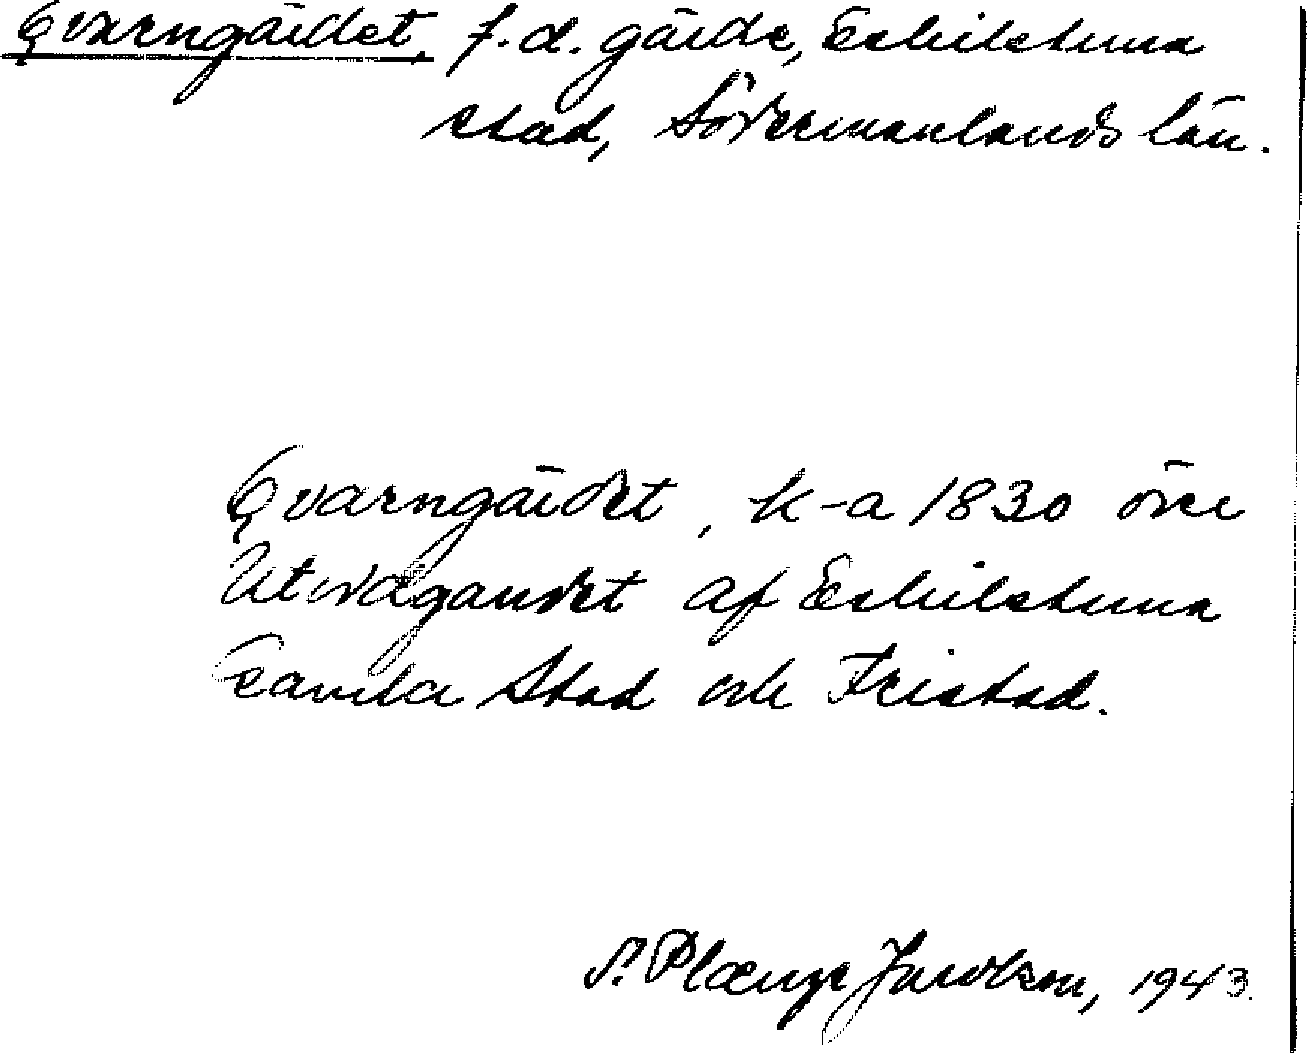 Qvarngärdet, f.d. gärde, Eskilstuna
stad, Södermanlands län.
Qvarngärdet, k-a 1830 över
Utvägandet af Eskilstuna
Gamla Stad och Fristad.
S. Plænge Jacobson, 1943.